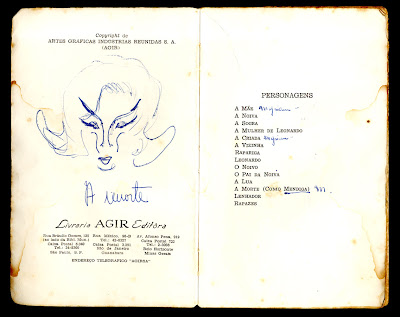 Copyright de
ARTES GRÁFICAS INDÚSTRIAS REUNIDAS S. A.
(AGIR)
A morte
Livraria AGIR Editôra
Rua Bráulio Gomes, 125
(ao lado da Bibl. Mun.)
Caixa Postal 6.040
Tel.: 34-8300
São Paulo, S. P.
Rua México, 98-B
Tel.: 42-8327
Caixa Postal 3.291
Rio de Janeiro
Guanabara
Av. Afonso Pena, 919
Caixa Postal 733
Tel.: 2-3038
Belo Horizonte
Minas Gerais
ENDERÊÇO TELEGRÁFICO "AGIRSA"
PERSONAGENS
A MÃE
A NOIVA
A SOGRA
A MULHER DE LEONARDO
A CRIADA
A VIZINHA
RAPARIGA
LEONARDO
O NOIVO
O PAI DA NOIVA
A LUA
A MORTE (COMO MENDIGA)
LENHADOR
RAPAZES